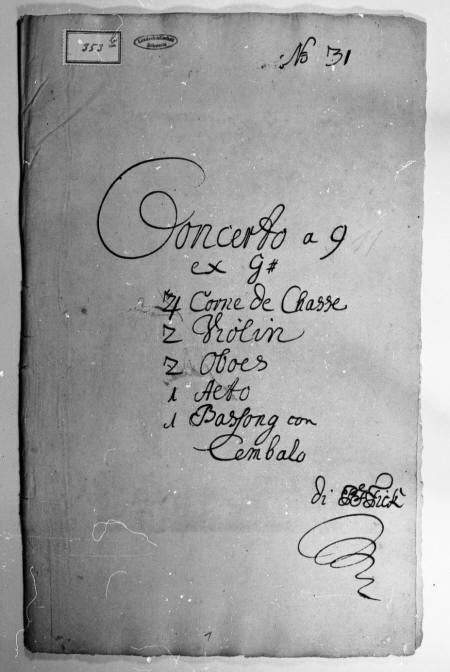 353 6
Landesbibliothek
Schwerin
No 31
Concerto a 9
ex G#
Corne de Chasse
2 Violin
2 Oboes
1 Alto
1 Bassong con
Cembalo
di Fick
1